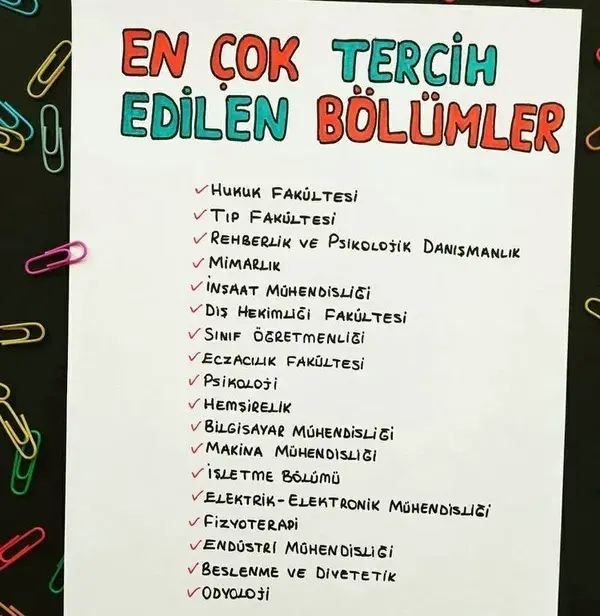 EN ÇOK TERCİH
EDİLEN BÖLÜMLER
✓HUKUK FAKÜLTESİ
✓TIP FAKÜLTESİ
✓REHBERLİK VE PSİKOLOJİK DANIŞMANLIK
✓MİMARLIK
✓İNŞAAT MÜHENDİSLİĞİ
✓DİŞ HEKİMLİĞİ FAKÜLTESİ
✓SINIF ÖĞRETMENLİĞİ
✓ECZACILIK FAKÜLTESİ
✓PSİKOLOJİ
✓HEMŞİRELİK
✓BİLGİSAYAR MÜHENDİSLİĞİ
✓MAKİNA MÜHENDİSLİĞİ
✓İŞLETME BÖLÜMÜ
✓ELEKTRİK-ELEKTRONİK MÜHENDİSLİĞİ
✓FİZYOTERAPİ
✓ENDÜSTRİ MÜHENDİSLİĞİ
✓BESLENME VE DİYETETİK
✓ODYOLOJİ